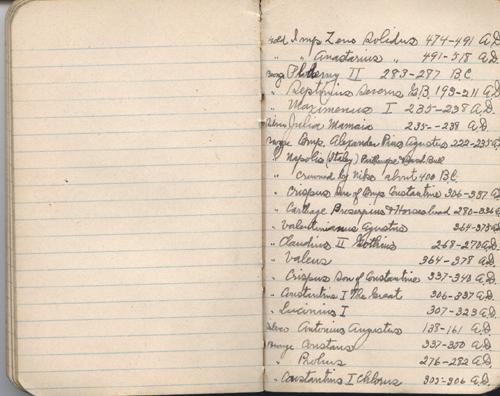 Gold Imp Zeno Solidus 474-491 A.D.
" " Anastasius " 491-518 A.D.
Bronze Ptolemy II 283-287 B.C.
" Septimius Severus G.B. 193-211 A.D.
" Maximenus I 235-238 A.D.
Silver Julia Mamaia 235--238 A.D.
Bronze Imp. Alexander Pius Agustus 222-235 A.D.
" Napolis (Italy) Parthenope & Bull
" crowned by Nike about 400 B.C.
" Crispus Son of Emp Constantine 306-337 A.D.
" Carthage Proserpine & Horses head 280-336
" Valentinianus Agustus 364-375 A.D.
" Claudius II Gothius 268-270 A.D.
" Valens 364-378 A.D.
" Crispus Son of Constantine 337-340 A.D.
" Constantine I The Great 306-337 A.D.
" Lucinius I 307-323 A.D.
Silver Antonius Augustus 138-161 A.D.
Bronze Constans 337-350 A.D.
" Probus 276-282 A.D.
" Constantius I Chlorus 305-306 A.D.